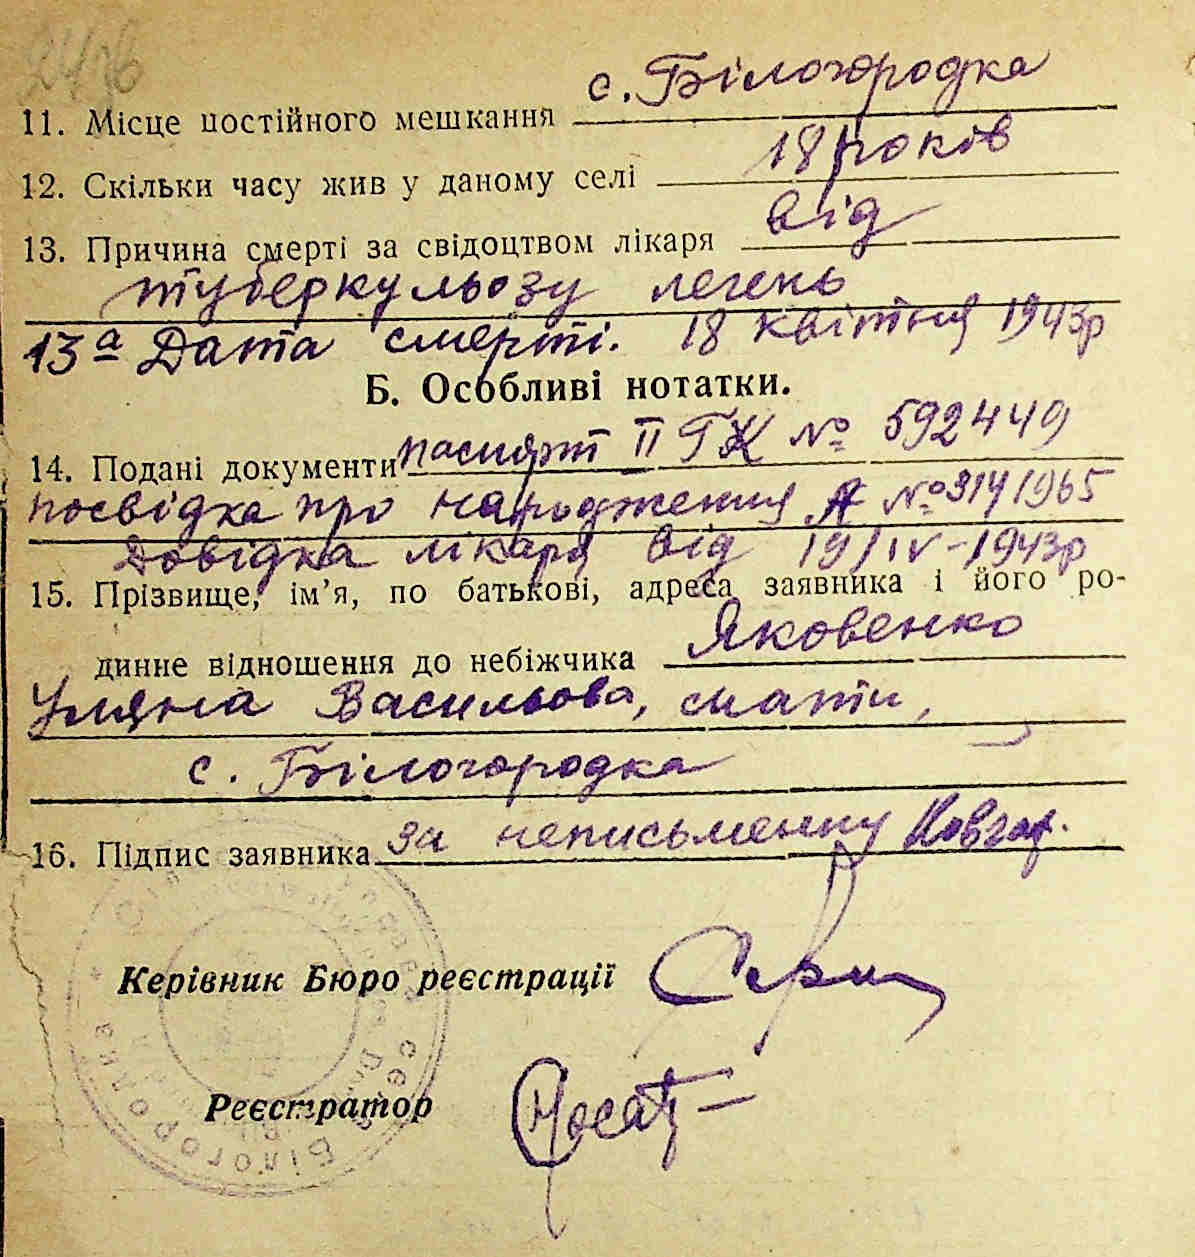 2476
с. Білогородка
11. Місце постійного мешкання
18 років
12. Скільки часу жив у даному селі
від
13. Причина смерті за свідоцтвом лікаря
туберкульозу легень
13а Дата смерті. 18 квітня 1943р
Б. Особливі нотатки.
14. Подані документи паспорт II ГК № 592449
посвідка про народження А № 3141965
Довідка лікаря від 19/IV-1943р
15. Прізвище, ім'я, по батькові, адреса заявника і його ро-
динне відношення до небіжчика Яковенко
Уляна Васильова, мати,
с. Білогородка
16. Підпис заявника за неписьменну
Керівник Бюро реєстрації
Реєстратор
Білогородка